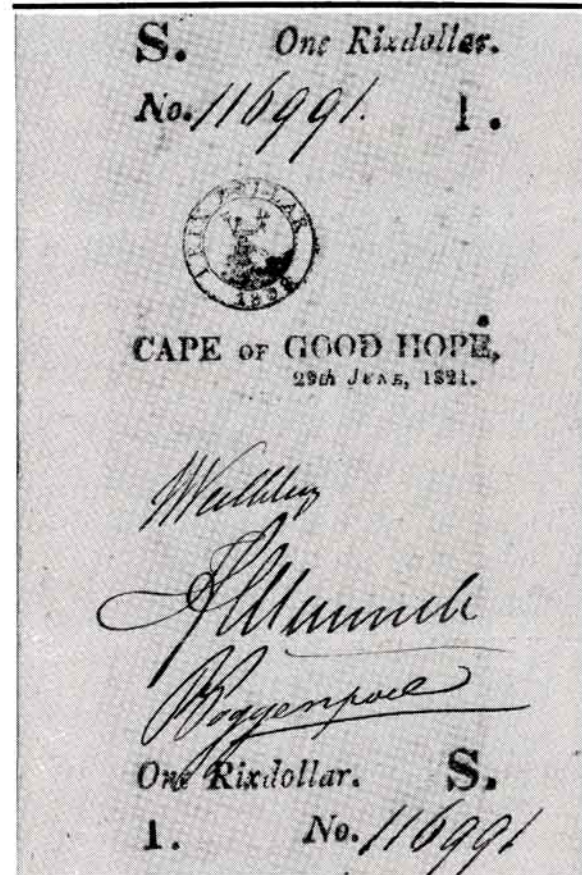 S. One Rixdollar.
No. 116991. 1.
CAPE OF GOOD HOPE,
29th JUNE, 1821.
Poggenpoel
One Rixdollar. S.
1. No. 116991